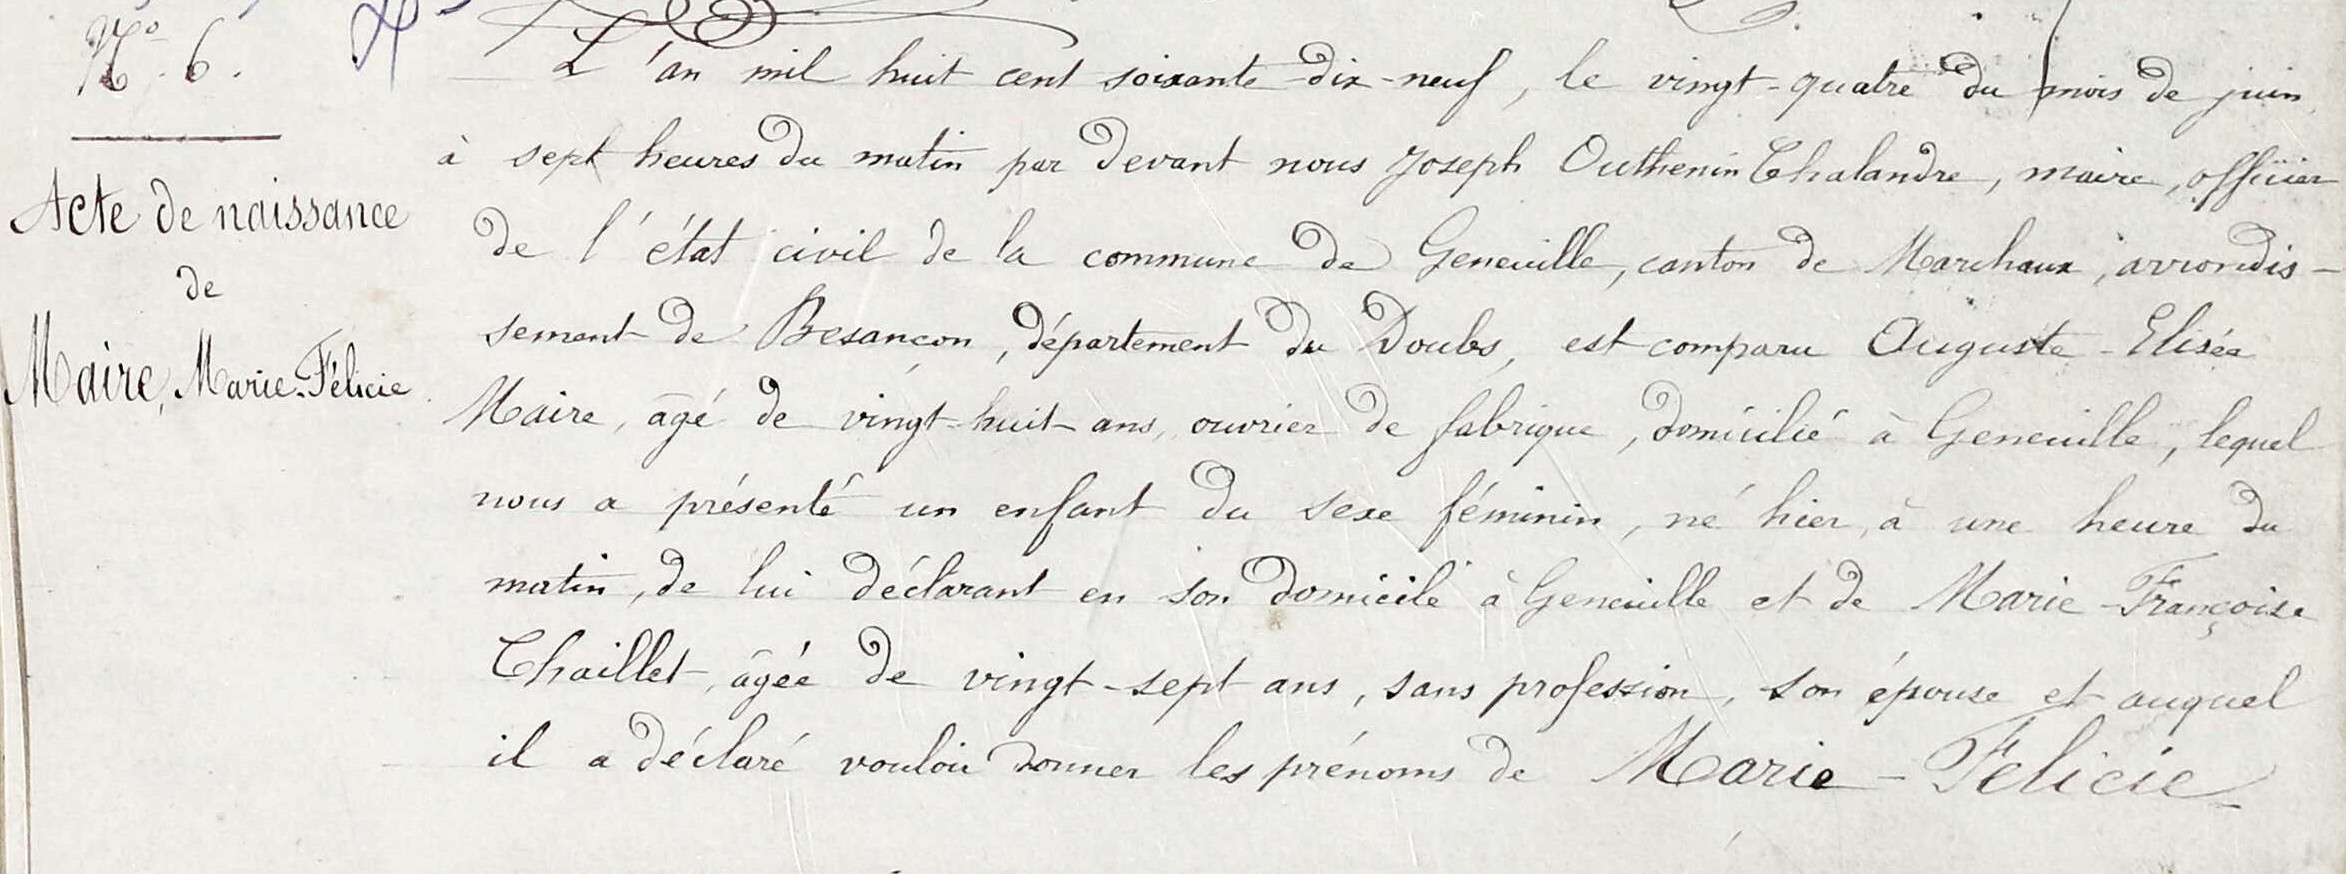 N.° 6.
Acte de naissance
de
Maire, Marie-Félicie
L'an mil huit cent soixante-dix-neuf, le vingt-quatre du mois de juin
à sept heures du matin par devant nous Joseph Outhenin Chalandre, maire, officier
de l'état civil de la commune de Geneuille, canton de Marchaux, arrondis-
sement de Besançon, département du Doubs, est comparu Auguste-Elisée
Maire, âgé de vingt-huit ans, ouvrier de fabrique, domicilié à Geneuille, lequel
nous a présenté un enfant du sexe féminin, né hier, à une heure du
matin, de lui déclarant en son domicile à Geneuille et de Marie-Françoise
Chaillet, âgée de vingt-sept ans, sans profession, son épouse et auquel
il a déclaré vouloir donner les prénoms de Marie-Felicie